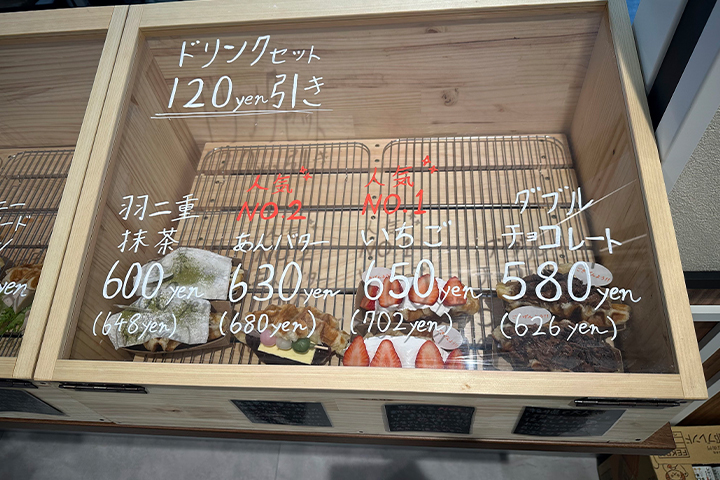 ドリンクセット
120yen引き
羽二重
抹茶
600yen
(648yen)
人気
NO.2
あんバター
630yen
(680yen)
人気
NO.1
いちご
650yen
(702yen)
ダブル
チョコレート
580yen
(626yen)
yen